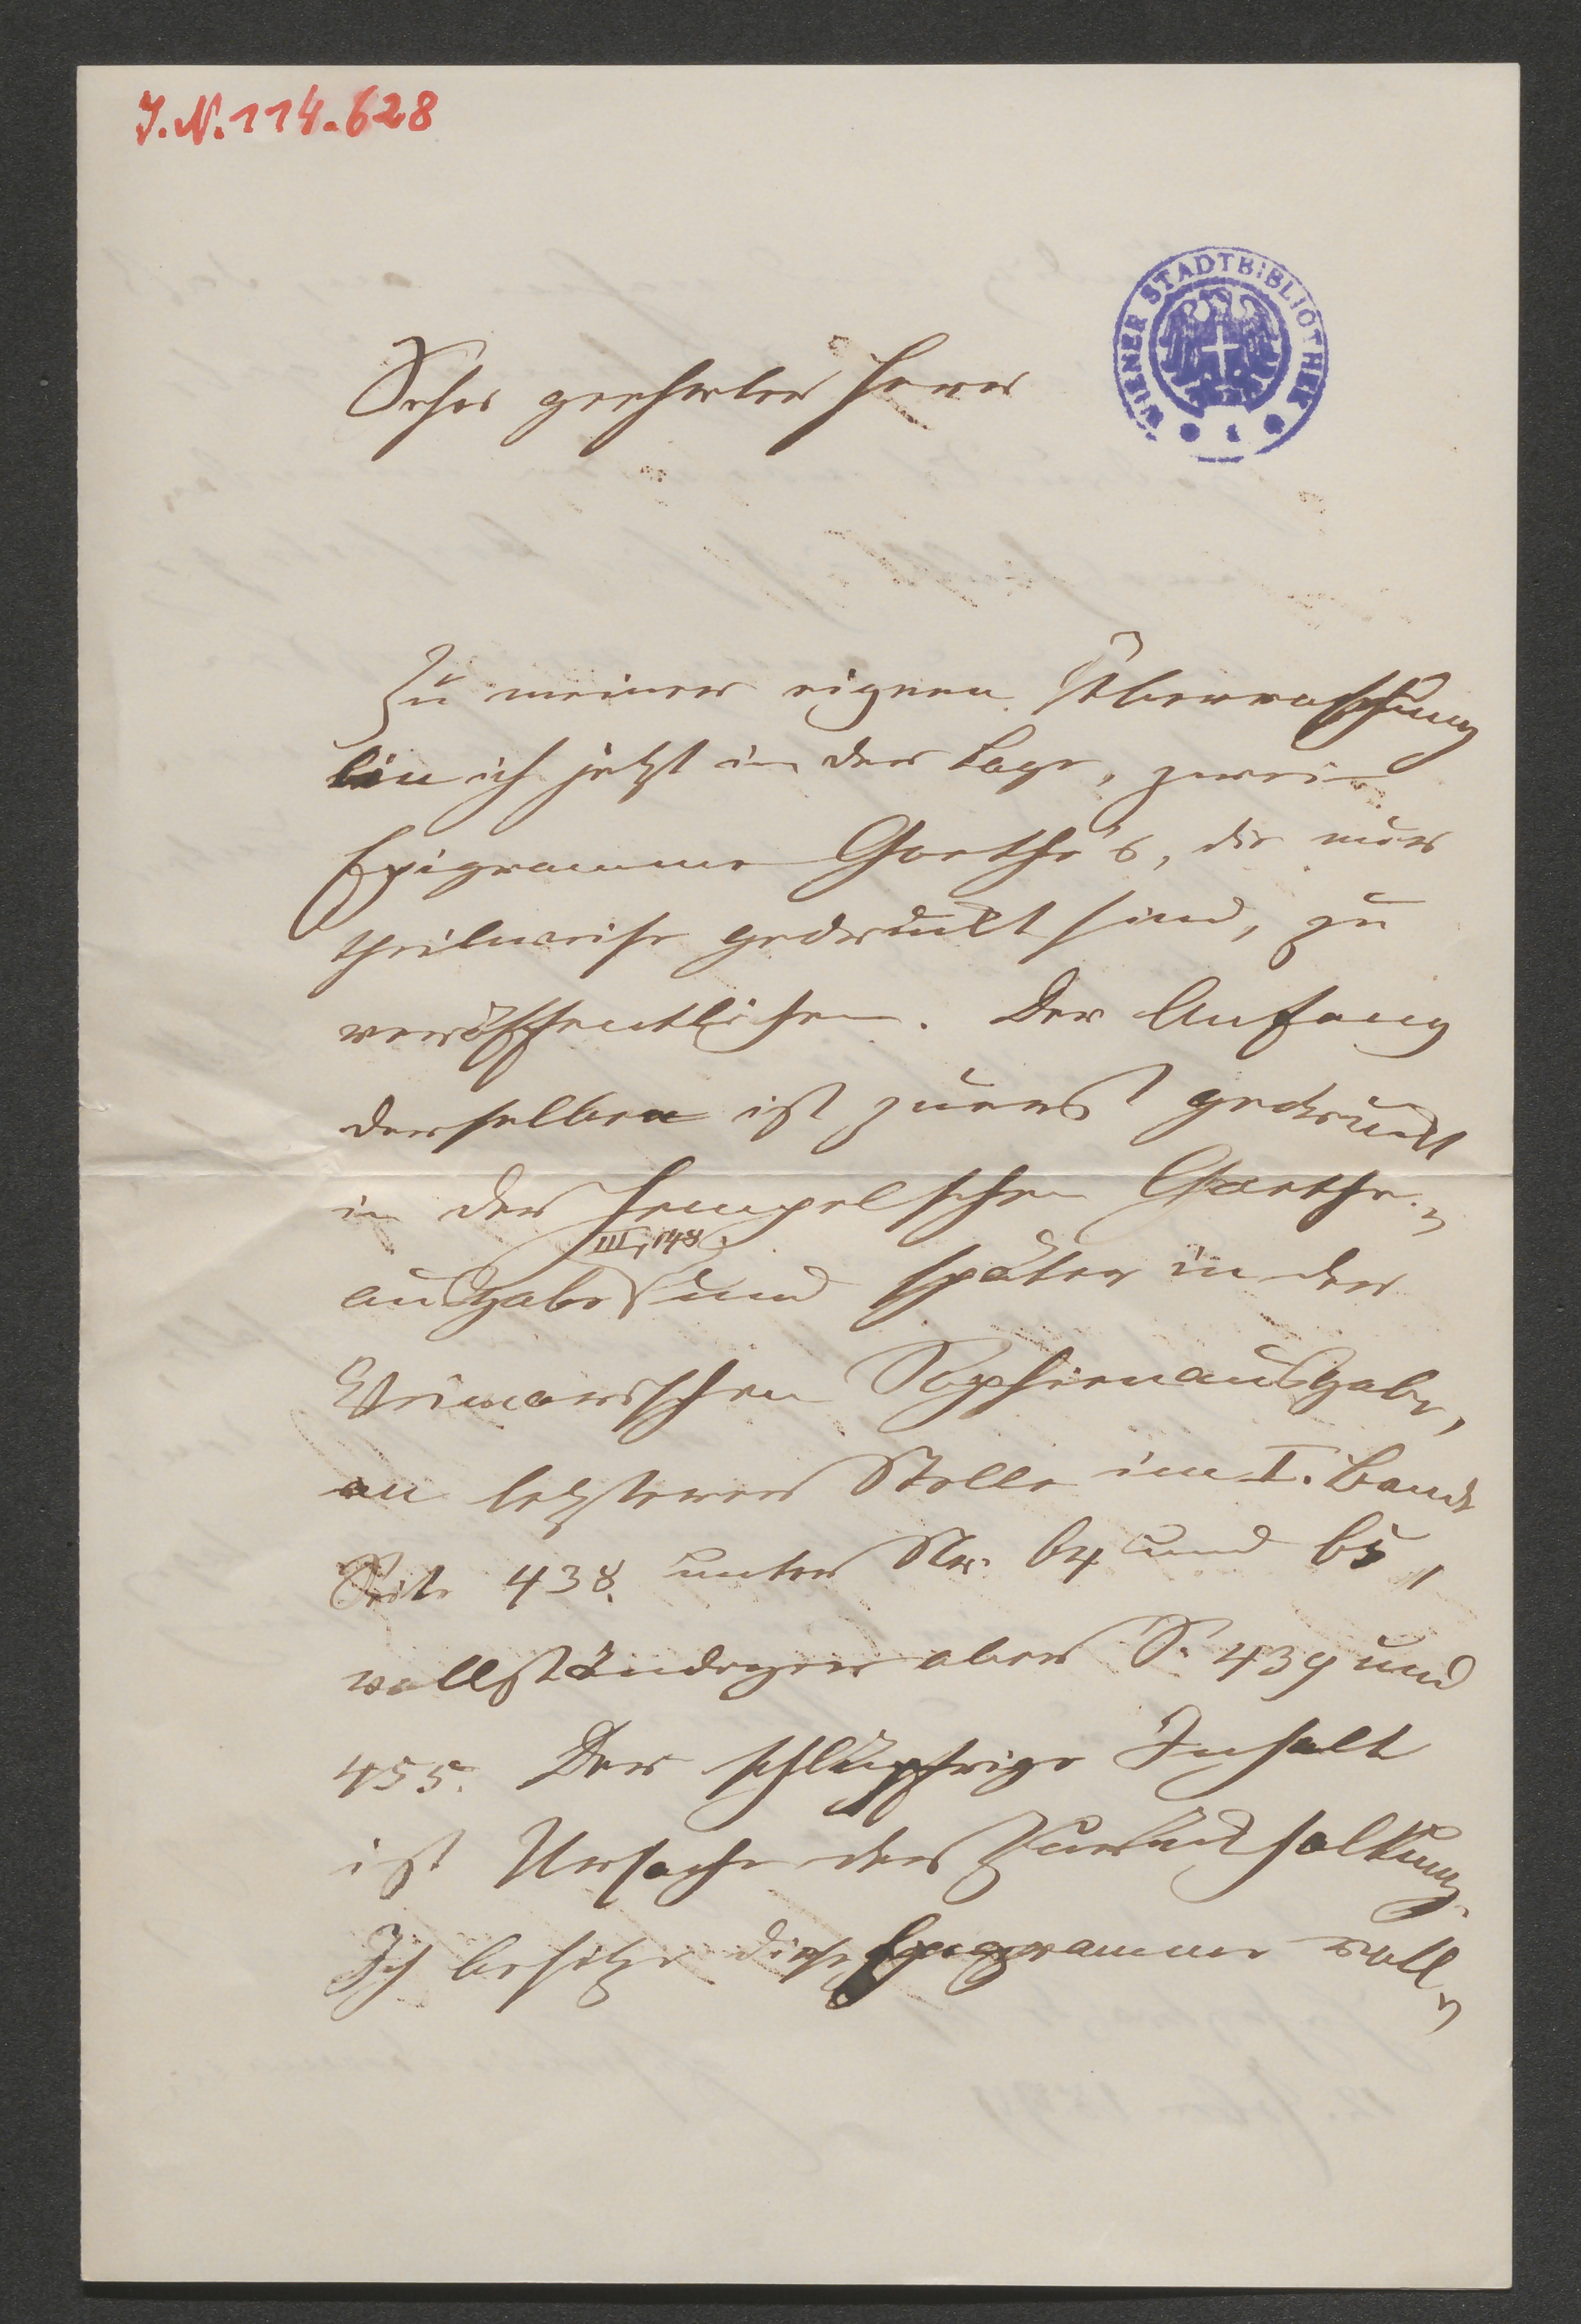 J.N.114.628
WIENER STADTBIBLIOTHEK
Sehr geehrter Herr
Zu meiner eignen Überraschung
bin ich jetzt in der Lage, zwei
Epigramme Goethe's, die nur
theilweise gedruckt sind, zu
veröffentlichen. Der Anfang
derselben ist zuerst gedruckt
in der Hempelschen Goethe-
III, 148
ausgabe und später in der
Weimarischen Sophienausgabe,
an letzterer Stelle im I. Band
Seite 438. unter Nr. 64 und 65,
vollständiger aber S. 439 und
455. Der schlüpfrige Inhalt
ist Ursache der Zurückhaltung.
Ich besitze diese Epigramme voll-